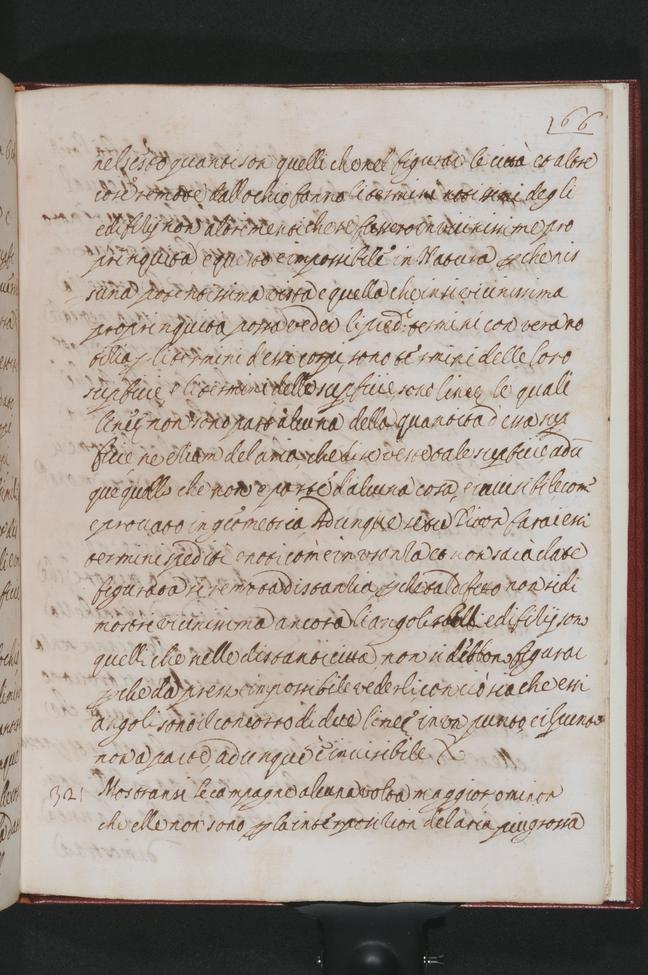 166
nel sesto quanti son quelli che nel figurar le città et altre
cose remote dall ochio fanno li termini notissimi degli
edifitij non altrementi che se fussero in vicinissime pro
pinquità, e questo è impossibile in Natura p che nis
suna potentissima vista e quella che in sì vicinissima
propinquità possa vedere li pred.ti termini con vera no
titia p li termini d'essi corpi sono termini delle loro
supfitie e li termini delle supfitie sono linee, le quali
linee non sono parte alcuna della quantità d'essa sup
fitie ne etiam del aria, che di se veste tale supfitie adū
que quello che non è parte d'alcuna cosa, è invisibile com'
è provato in giometria, Adunque se tu Pittor farai essi
termini spediti e noti com'è in usanza et non sarà da te
figurata sì remota distantia, p che tal difetto non si di
mostri vicinissima ancora li angoli delli edifitij sono
quelli che nelle distanti città non si debbon figurar
p che da presso è impossibile vederli con ciò sia che essi
angoli sono il concorso di due linee in un punto, e il punto
non a parte adunque è invisibile
321 Mostransi le campagne alcuna volta maggior o minor
che elle non sono p la interposition del aria piu grossa